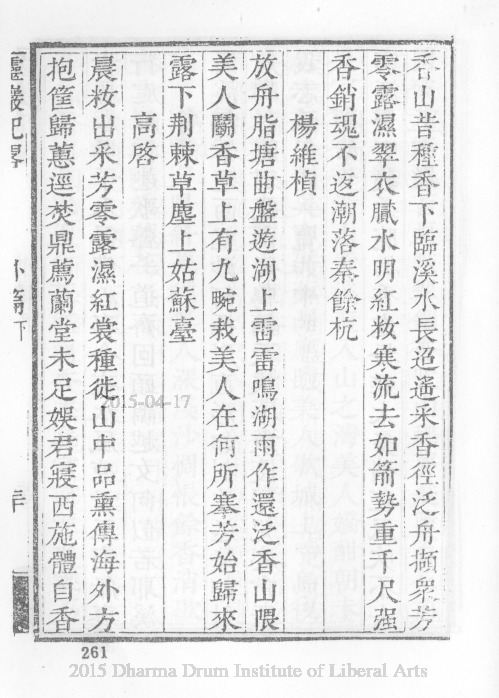 香山昔種香下臨溪水長迢遙采香徑泛舟擷衆芳
零露濕翠衣膩水明紅妝寒流去如箭勢重千尺强
香銷魂不返潮落奉餘杭
楊維楨
放舟脂塘曲盤遊湖上雷雷鳴湖雨作還泛香山隈
美人鬬香草上有九畹栽美人在何所搴芳始歸來
露下荆棘草塵上姑蘇臺
高啓
晨妝出采芳零露濕紅裳種徙山中品熏傳海外方
抱筐歸蕙逕焚鼎薦蘭堂未足娛君寢西施體自香
靈巖紀畧
外篇下
2015-04-17
261
2015 Dharma Drum Institute of Liberal Arts